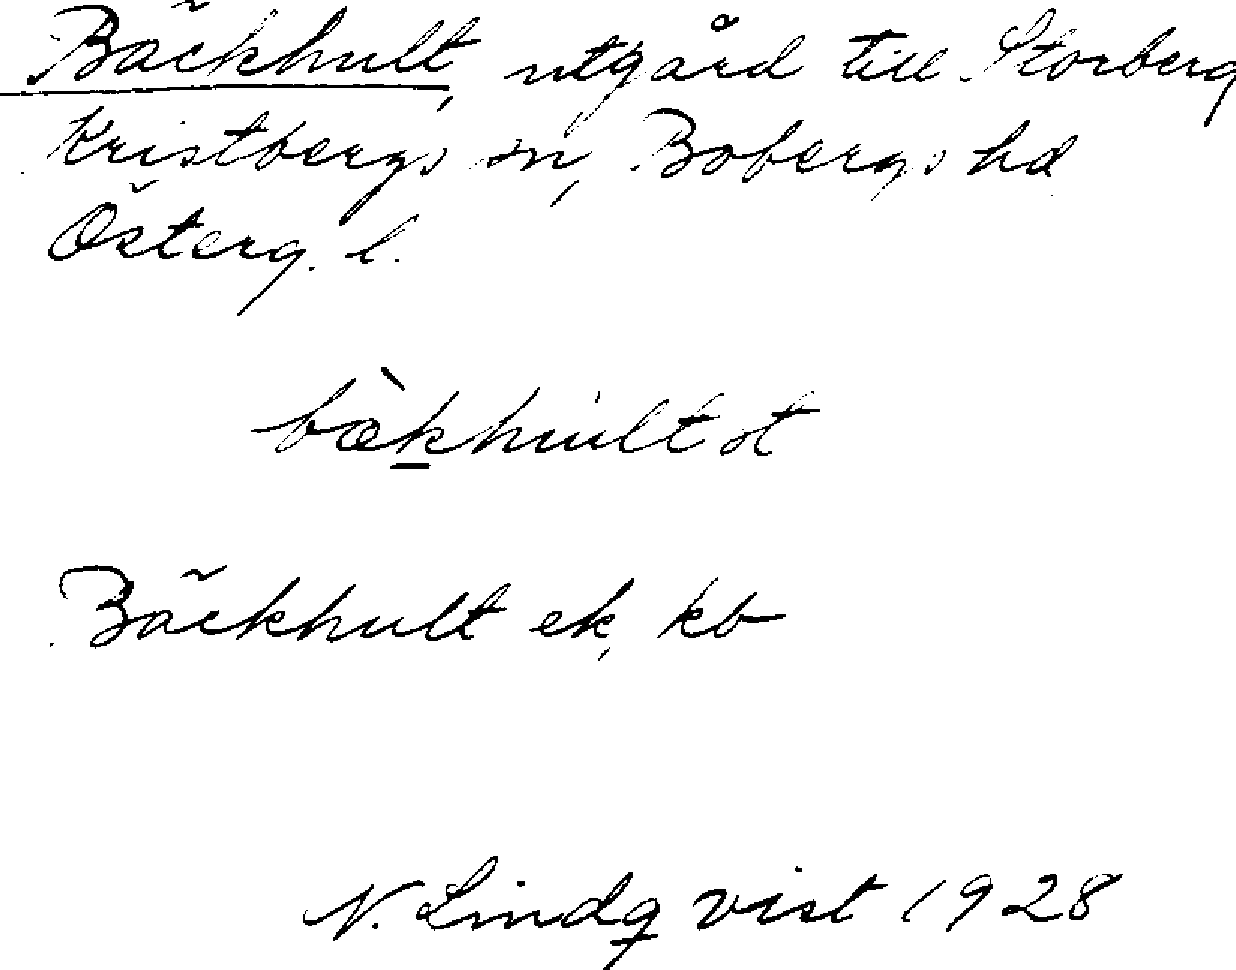 Bäckhult, utgård till Storberg
Kristbergs sn, Bobergs hd
Österg. l.
bæ̀khult
Bäckhult ek, kb
N. Lindqvist 1928